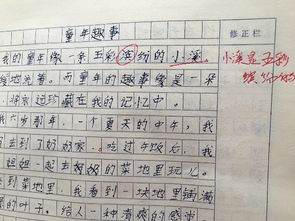 童年趣事
修正栏
我的童年像一条五彩滨纷的小溪
小溪是五彩
缤纷的
缓地流着。而童年的趣事像是一朵
珍藏在我的记忆中。
六岁那年,一个夏天的中午,我
回去到了奶奶家。吃过午饭后,我
姐姐一起去奶奶的菜地里玩儿。
走到菜地里,我看到一块地里铺满
的叶子。给人一种清爽的感觉